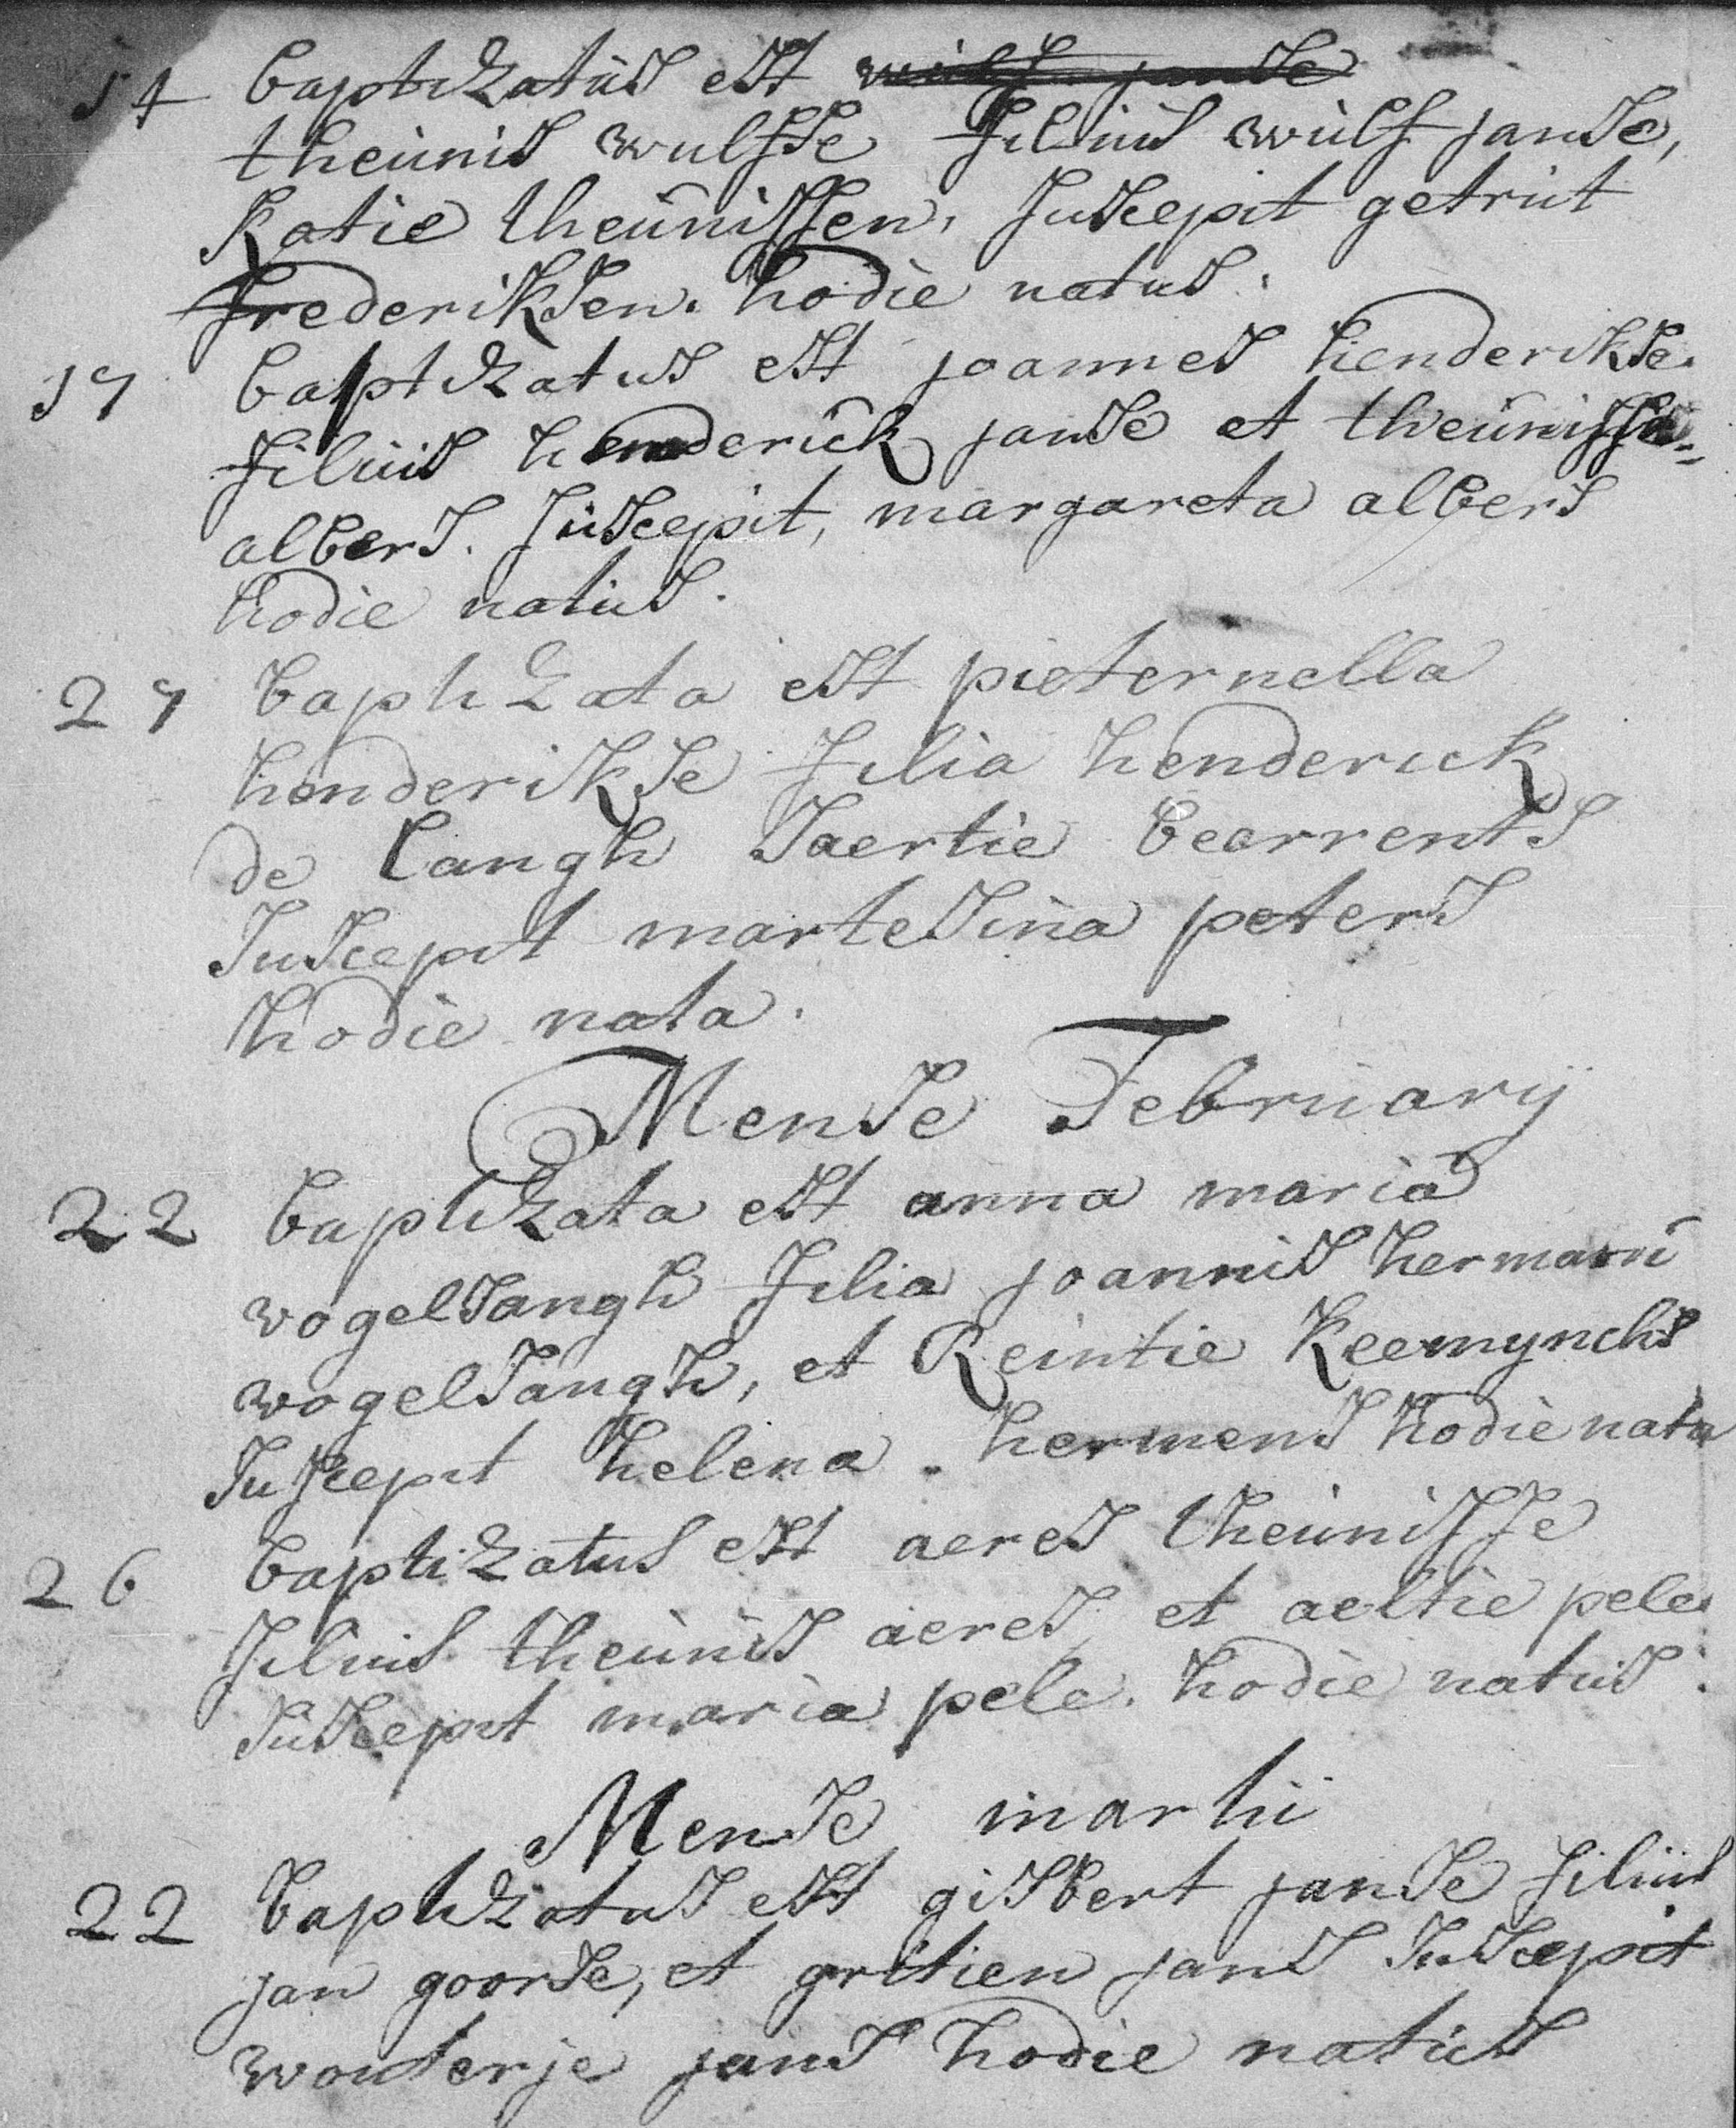 14 baptizatus est wulf janse
theunis wulfse filius wulf janse,
Katie theunissen, suscepit getrut
frederiksen. hodie natus.
17 baptizatus est joannes henderikse
filius henderick janse et theunisse
albers. suscepit, margareta albers
hodie natus.
27 baptizata est pieternella
henderikse filia henderick
de langh saertie bearrents
suscepit martesina peters
hodie nata.
Mense February
22 baptizata est anna maria
vogelsangh filia joannis hermani
vogelsangh, et Reintie Keemyncks
suscepit helena hermens hodie nata
26 baptizatus est aeres theunisse
filius theunis aeres et aeltie pele
suscepit maria pele. hodie natus.
Mense martii
22 baptizatus est gisbert janse filius
jan goorse, et gritien jans suscepit
wouterje jans hodie natus